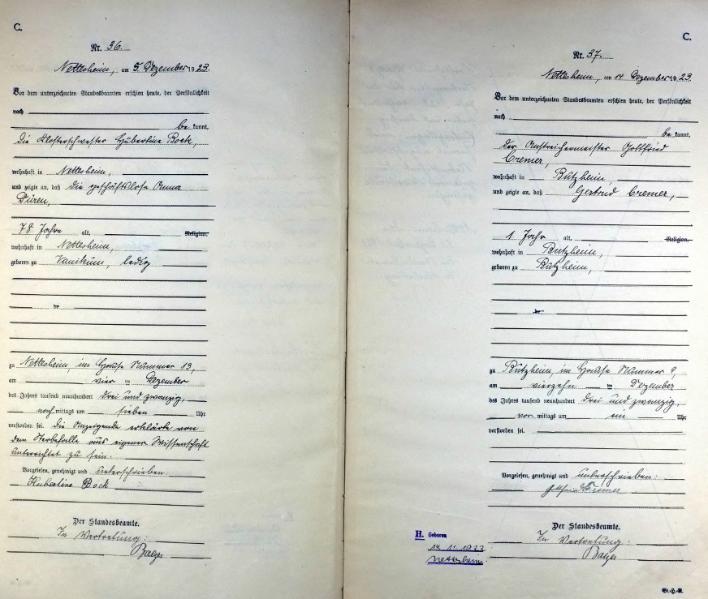 C.
Nr. 36.
Nettesheim, am 5. Dezember 1923.
Vor dem unterzeichneten Standesbeamten erschien heute, der Persönlichkeit
nach
be kannt,
die Klosterschwester Hubertine Bock,
wohnhaft in Nettesheim,
und zeigte an, daß die geschäftslose Anna
Düren,
78 Jahre alt, Religion,
wohnhaft in Nettesheim,
geboren zu Vanikum, ledig
zu Nettesheim, im Hause Nummer 13,
am vier ten Dezember
des Jahres tausend neunhundert drei und zwanzig,
nach mittags um sieben Uhr
verstorben sei. Die Anzeigende erklärte von
dem Sterbefalle aus eigener Wissenschaft
unterrichtet zu sein.
Vorgelesen, genehmigt und unterschrieben
Hubertine Bock
Der Standesbeamte.
In Vertretung:
C.
Nr. 37.
Nettesheim, am 14. Dezember 1923.
Vor dem unterzeichneten Standesbeamten erschien heute, der Persönlichkeit
nach
be kannt,
der Anstreichermeister Gottfried
Cremer,
wohnhaft in Butzheim,
und zeigte an, daß Gertrud Cremer,
1 Jahr alt, Religion,
wohnhaft in Butzheim,
geboren zu Butzheim,
zu Butzheim, im Hause Nummer
am vierzehn ten Dezember
des Jahres tausend neunhundert drei und zwanzig,
vor mittags um ein Uhr
verstorben sei.
Vorgelesen, genehmigt und unterschrieben:
Cremer
H. Geboren
Nettesheim
Der Standesbeamte.
In Vertretung: